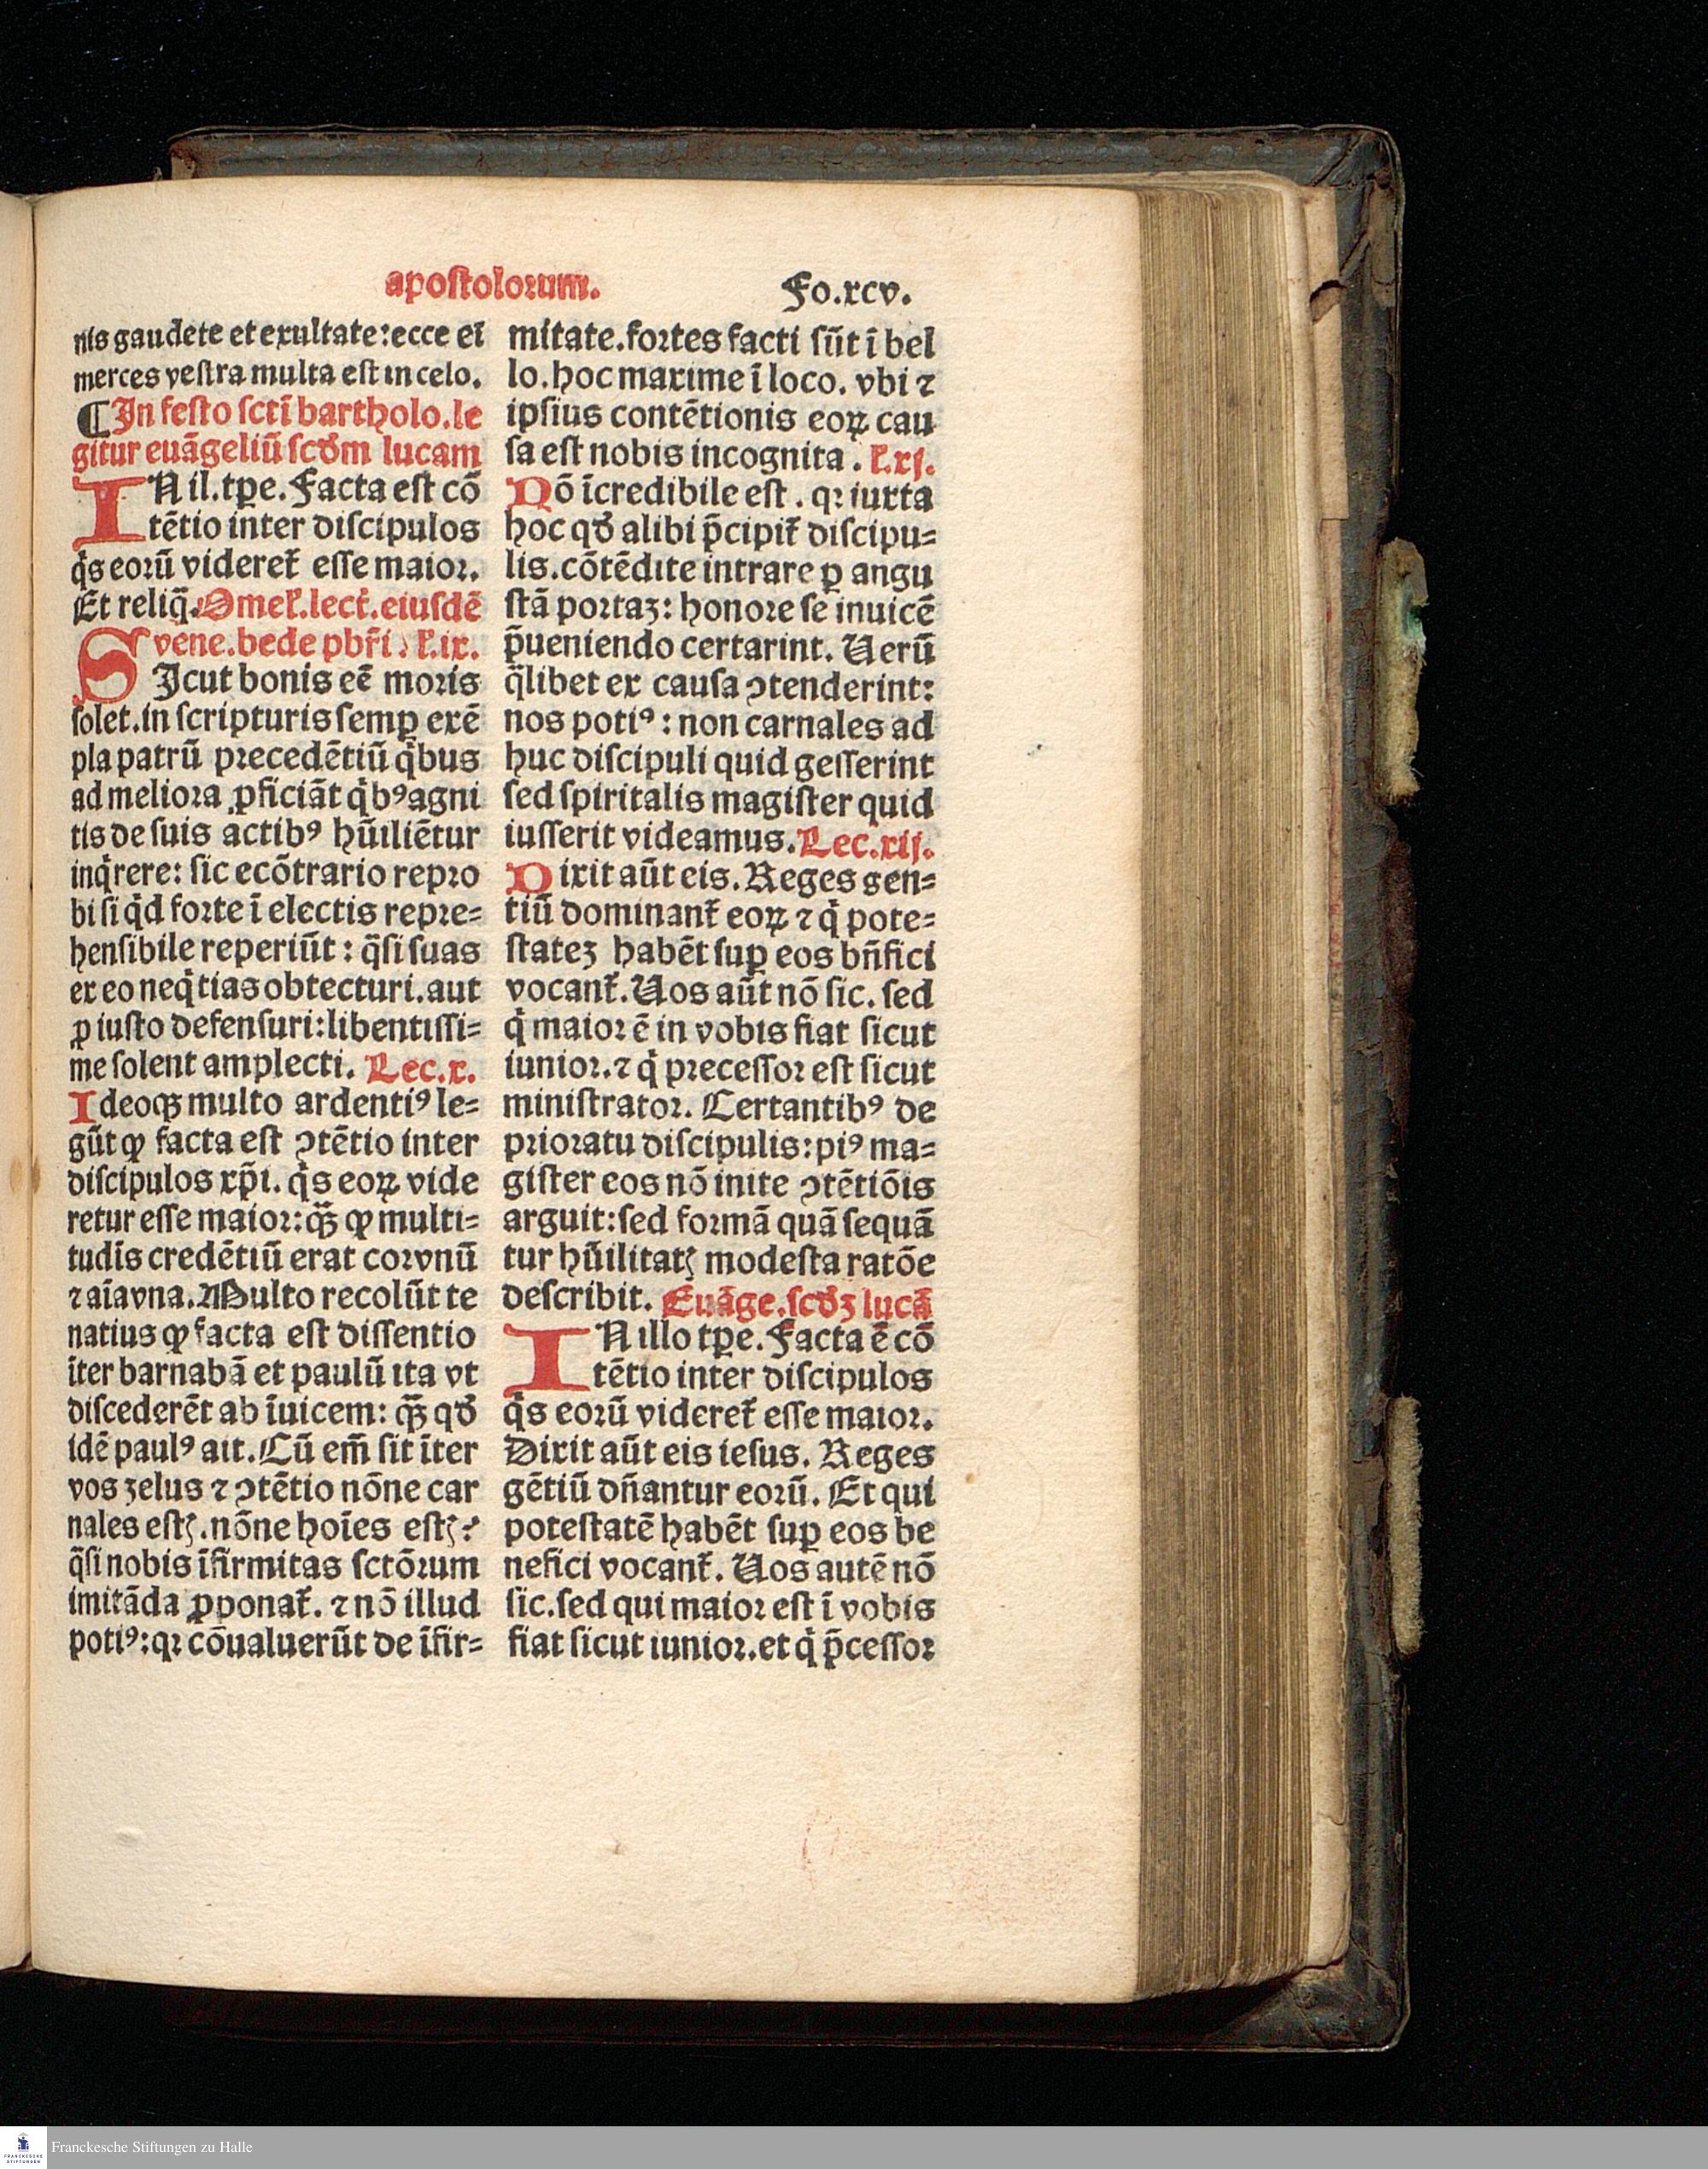 apostolorum.
Fo.xcv.
nis gaudete et exultate:ecce eī
merces vestra multa est in celo.
¶In festo sctī bartholo.le
gitur euāgeliū scd̄m lucam
IN il.tp̄e.Facta est cō
tētio inter discipulos
q̇s eorū videret᷑ esse maior.
Et reliq̄.Omel᷑.lect᷑.eiusdē
vene.bede pbr̄i. l᷑.ix.
SIcut bonis eē moris
solet.in scripturis semꝑ exē
pla patrū precedētiū q̇bus
ad meliora ꝓficiāt q̇bꝰ agni
tis de suis actibꝰ hūiliētur
inq̇rere: sic ecōtrario repro
bi si q̇d forte ī electis repre⸗
hensibile reperiūt : q̄si suas
ex eo neq̇tias obtecturi.aut
ꝓ iusto defensuri:libentissi⸗
me solent amplecti. Lec.x.
Ideoqꝫ multo ardentiꝰ le⸗
gūt ꝙ facta est ↄtētio inter
discipulos xp̄i. q̇s eoꝝ vide
retur esse maior:qꝫ̄ ꝙ multi⸗
tudīs credētiū erat cor vnū
⁊ aīa vna.Multo recolūt te
natius ꝙ facta est dissentio
īter barnabā et paulū ita vt
discederēt ab īuicem: qꝫ̄ qd̄
idē paulꝰ ait.Cū em̄ sit īter
vos zelus ⁊ ↄtētio nōne car
nales estꝭ.nōne hoīes estꝭ?
q̄si nobis īfirmitas sctōrum
imitāda ꝓponat᷑. ⁊ nō illud
potiꝰ:qꝛ cōualuerūt de īfir⸗
mitate.fortes facti sūt ī bel
lo.hoc maxime ī loco. vbi ⁊
ipsius contētionis eoꝝ cau
sa est nobis incognita . l᷑.xj.
Nō īcredibile est . qꝛ iuxta
hoc qd̄ alibi p̄cipit᷑ discipu⸗
lis.cōtēdite intrare ꝑ angu
stā portaꝫ: honore se inuicē
p̄ueniendo certarint. Uerū
q̄libet ex causa ↄtenderint:
nos potiꝰ : non carnales ad
huc discipuli quid gesserint
sed spiritalis magister quid
iusserit videamus.Lec.xij.
Dixit aūt eis.Reges gen⸗
tiū dominant᷑ eoꝝ ⁊ q̇ pote⸗
stateꝫ habēt suꝑ eos bn̄fici
vocant᷑.Uos aūt nō sic. sed
q̇ maior ē in vobis fiat sicut
iunior.⁊ q̇ precessor est sicut
ministrator. Certantibꝰ de
prioratu discipulis:piꝰ ma⸗
gister eos nō inite ↄtētiōis
arguit:sed formā quā sequā
tur hūilitatꝭ modesta ratōe
describit. Euāge.scd̄ꝫ lucā
IN illo tp̄e.Facta ē cō
tētio inter discipulos
q̇s eorū videret᷑ esse maior.
Dixit aūt eis iesus. Reges
gētiū dn̄antur eorū. Et qui
potestatē habēt suꝑ eos be
nefici vocant᷑. Uos autē nō
sic.sed qui maior est ī vobis
fiat sicut iunior.et q̇ p̄cessor
Franckesche Stiftungen zu Halle
FRANCKESCHE
STIFTUNGEN